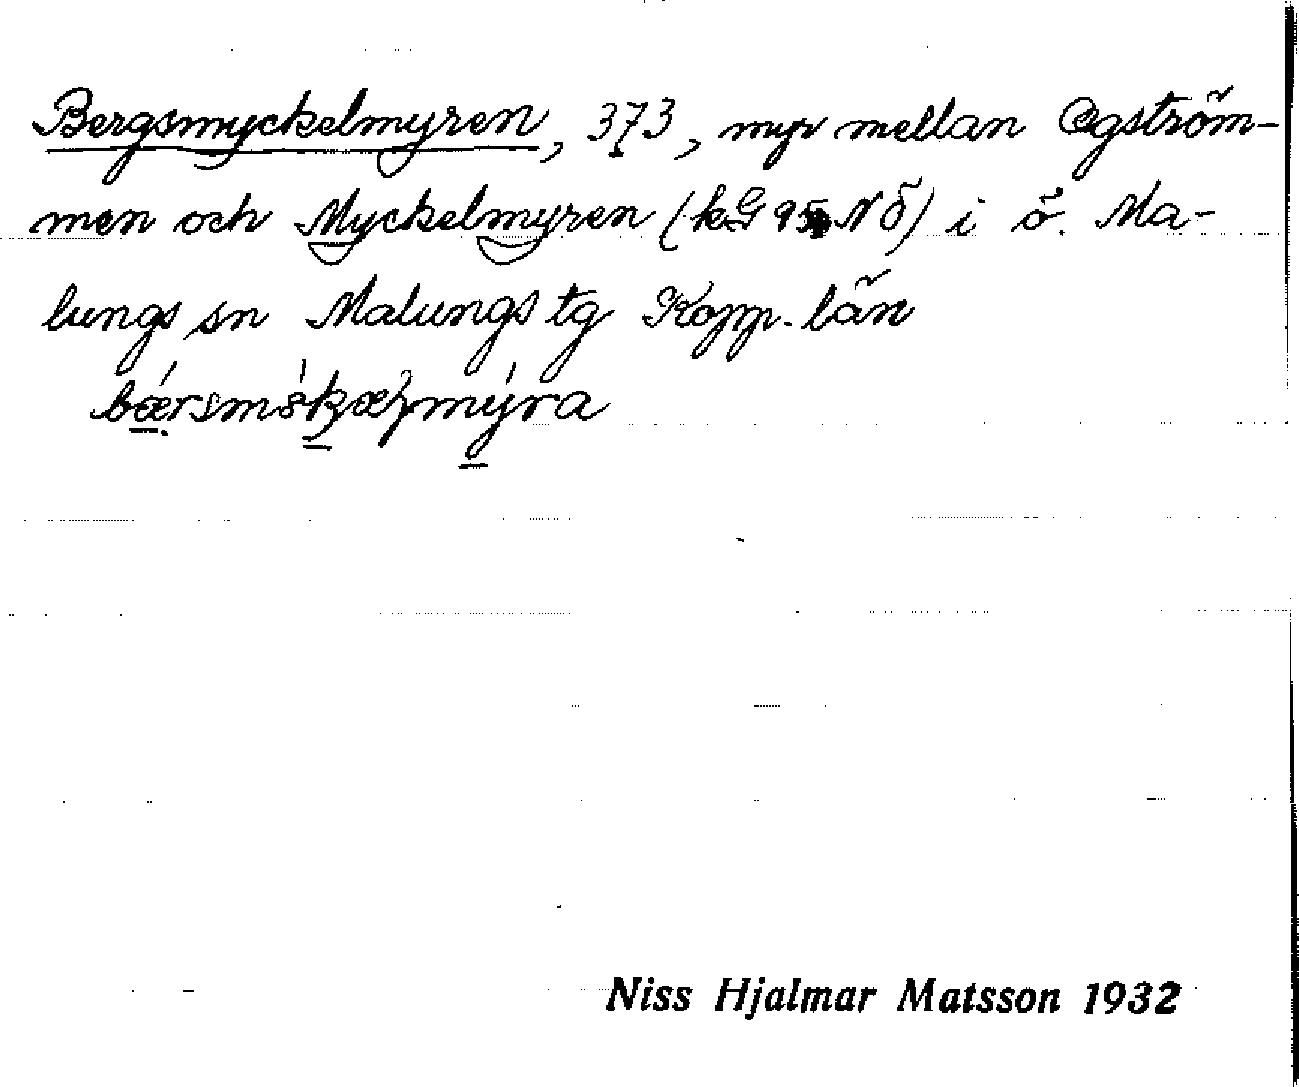 Bergsmyckelmyren, 373, myr mellan Ogström-
men och Myckelmyren (kG 95 NÖ) i ö. Ma-
lungs sn Malungs tg Kopp. län
Niss Hjalmar Matsson 1932